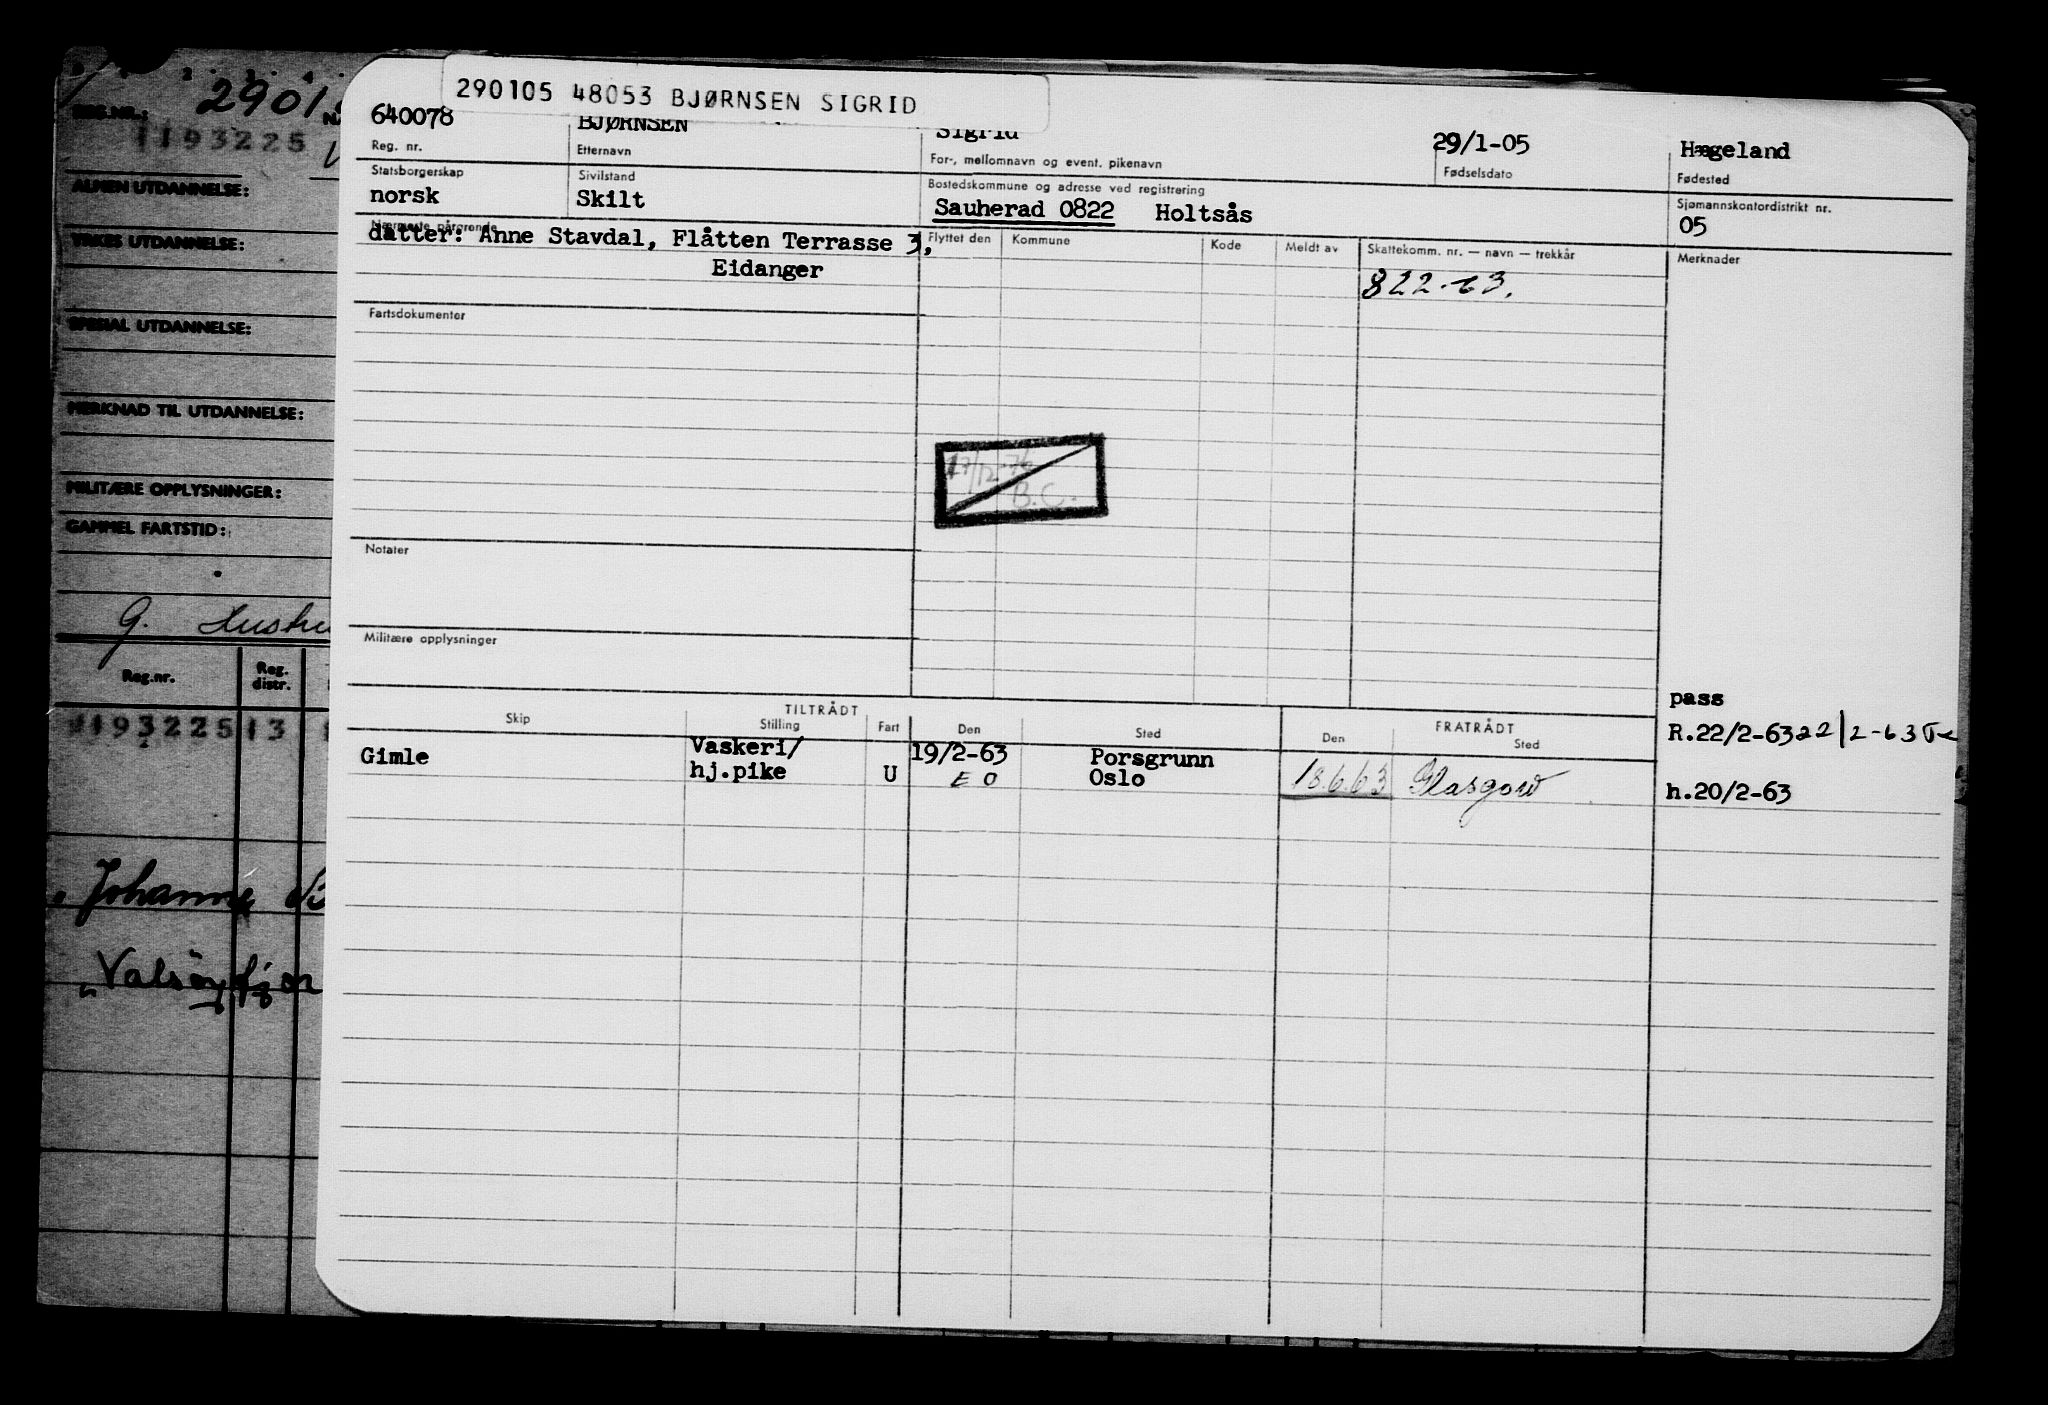 290105 48053 BJØRNSEN SIGRID
640078 BJØRNSEN Sigrid 29/1-05 Hægeland
Reg. nr. Etternavn For-, mellomnavn og event. pikenavn Fødselsdato Fødested
Statsborgerskap Sivilstand Bostedskommune og adresse ved registrering Sjømannskontordistrikt nr.
norsk Skilt Sauherad 0822 Holtsås 05
Nærmeste pårørende Flyttet den Kommune Kode Meldt av Skattekomm. nr. — navn — trekkår Merknader
datter: Anne Stavdal, Flåtten Terrasse 3,
Eidanger
822-63.
Fartsdokumenter
17/12-76
B.C.
Notater
Militære opplysninger
pass
TILTRÅDT FRATRÅDT
Skip Stilling Fart Den Sted Den Sted
R.22/2-63 22/2-63
Gimle Vaskeri/ 19/2-63 Porsgrunn
hj.pike U E O Oslo 18.6.63 Glasgow
h.20/2-63
REG.NR.: 2901
1193225
ALMEN UTDANNELSE:
YRKES UTDANNELSE:
SPESIAL UTDANNELSE:
MERKNAD TIL UTDANNELSE:
MILITÆRE OPPLYSNINGER:
GAMMEL FARTSTID:
G. Hustru
Reg.nr. Reg. distr.
1193225 13
Johanne B
"Valsöyfjor